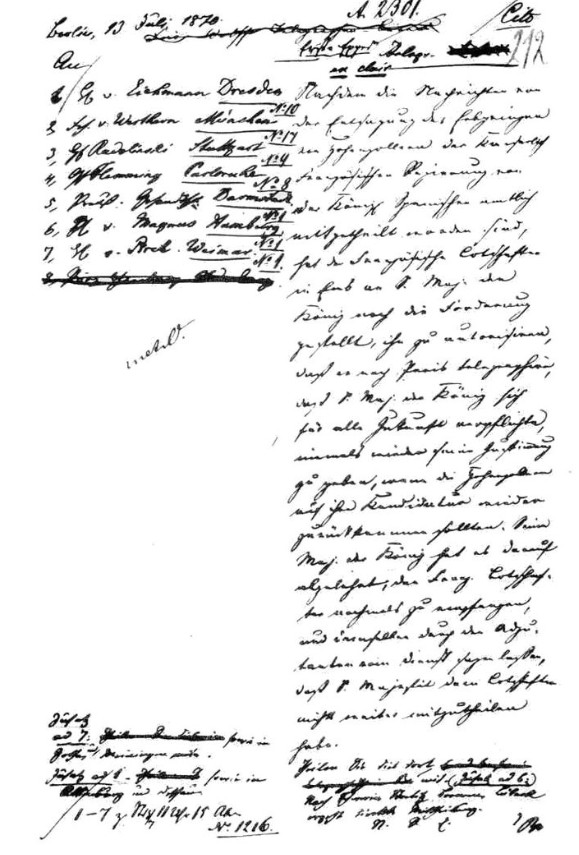 A. 2301.
Berlin, 13 Juli 1870.
Cito
212
Telegr.
en clair
An
1, v. Eichmann Dresden
No 10
2, v. Werthern München
No 17
3, Stuttgart
No 9
4, Gf Flemming Carlsruhe
No 8
5, Preuß. Gesandtsch. Darmstadt
No 1
6, v. Magnus Hamburg
No 1
7, v. Weimar
No 1
Nachdem die Nachrichten von
der Entsagung des Erbprinzen
von Hohenzollern der Kaiserlich
Französischen Regierung von
der Königl Spanischen amtlich
mitgetheilt worden sind,
hat der Französische Botschafter
in Ems an S. Maj. den
König noch die Forderung
gestellt, ihn zu autorisiren,
daß er nach Paris telegraphire,
daß S. Maj. der König sich
für alle Zukunft verpflichte,
niemals wieder seine Zustimmung
zu geben, wenn die Hohenzollern
auf ihre Kandidatur wieder
zurückkommen sollten. Seine
Maj. der König hat es darauf
abgelehnt, den Franz. Botschaf-
ter nochmals zu empfangen,
und demselben durch den Adju-
tanten vom Dienst sagen lassen,
daß S. Majestät dem Botschafter
nichts weiter mitzutheilen
habe.
Theilen Sie dies dort
mit (Zusatz ad 6:)
N. d. E.
Zusatz
ad 7: sowie in
Zusatz ad 8 sowie in
Altenburg
1–7
No 1216.